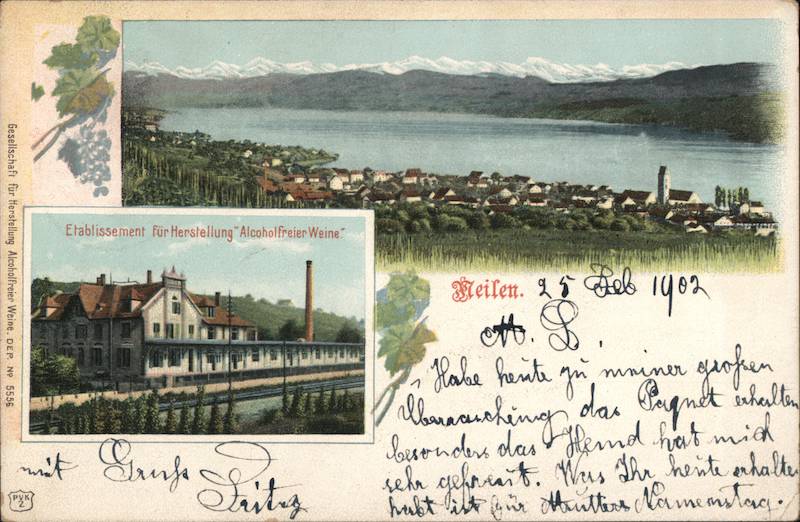 Gesellschaft für Herstellung Alcoholfreier Weine. DEP. No 5556
Etablissement für Herstellung "Alcoholfreier Weine".
Meilen. 25 Feb 1902
M. L.
Habe heute zu meiner großen
Überraschung das Paquet erhalten
besonders das Hemd hat mich
sehr gefreut. Was Ihr heute erhalten
habt ist für Mutters Namenstag.
mit Gruss
Fritz
PVK
Z